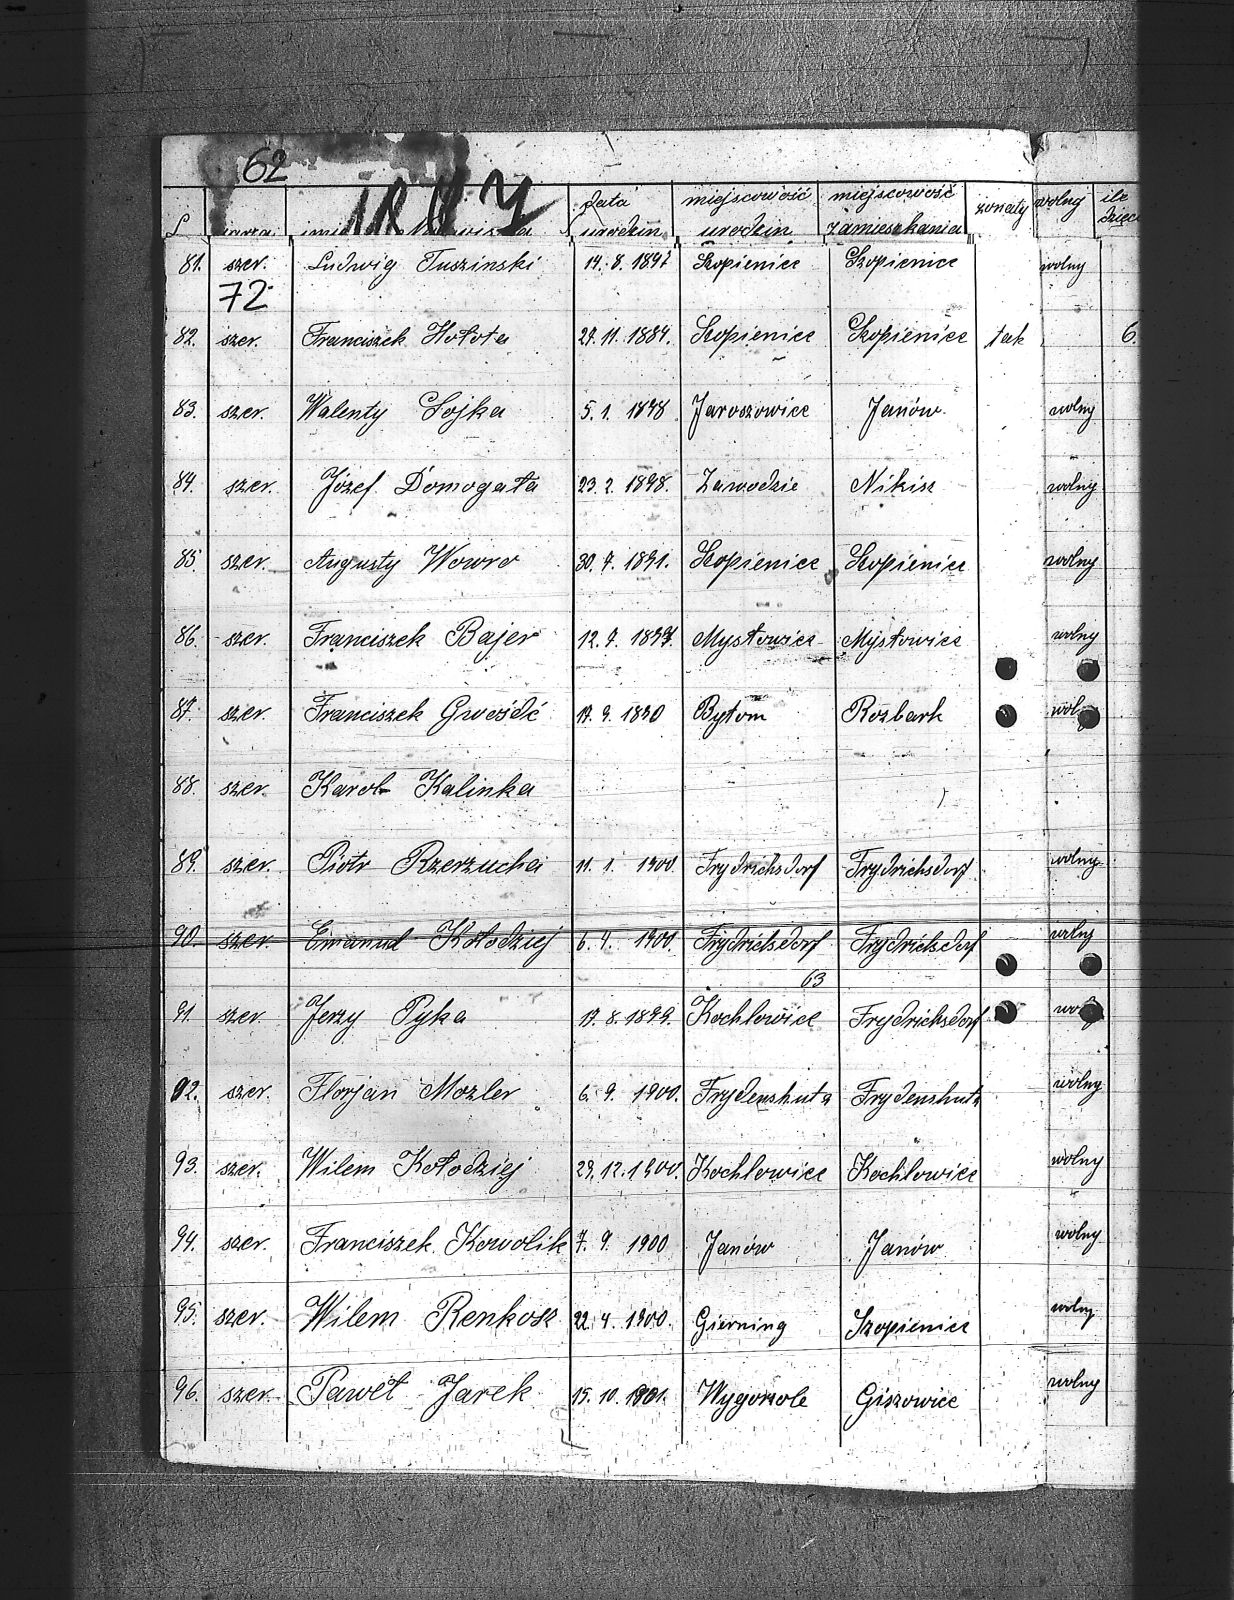 62
data miejscowość miejscowość żonaty wolny ile
urodzin urodzin zamieszkania dzieci
81. szer. Ludwig Tuszinski 14. 8. 1897 Szopienice Szopienice wolny
72
82. szer. Franciszek Hołota 27. 11. 1884. Szopienice Szopienice tak 6.
83. szer. Walenty Sojka 5. 1. 1898 Jaroszowice Janów wolny
84. szer. Józef Domogała 23. 2. 1898. Zawodzie Nikisz wolny
85. szer. Augusty Woworo 30. 7. 1891. Szopienice Szopienice wolny
86. szer. Franciszek Bajer 12. 7. Mysłowice Mysłowice wolny
87. szer. Franciszek Gwóźdź 17. 9. 1890 Bytom Rozbark wolny
88. szer. Karol Kalinka
89. szer. Piotr Rzerzucha 11. 1. 1900. Frydrichsdorf Frydrichsdorf wolny
90. szer. Emanuel Kołodziej 6. 4. 1900. Frydrichsdorf Frydrichsdorf wolny
63
91. szer. Jerzy Pyka 17. 8. 1899. Kochlowice Frydrichsdorf wolny
92. szer. Florjan Mozler 6. 9. 1900. Frydenshuta Frydenshuta wolny
93. szer. Wilem Kołodziej 29. 12. 1900. Kochlowice Kochlowice wolny
94. szer. Franciszek Kowolik 7. 9. 1900 Janów Janów wolny
95. szer. Wilem Renkosz 22. 4. 1900. Gierning Szopienice wolny
96. szer. Paweł Jarek 15. 10. 1901. Wygorzole Giszowice wolny